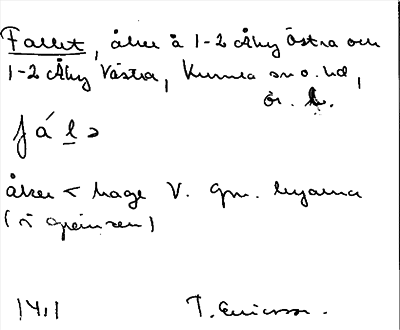 Fallet, åker å 1-2 Åby Östra och
1-2 Åby Västra, Kumla sn o. hd,
ör. l.
fál
åker < hage V. om byarna
(å gränsen)
T. Ericsson.